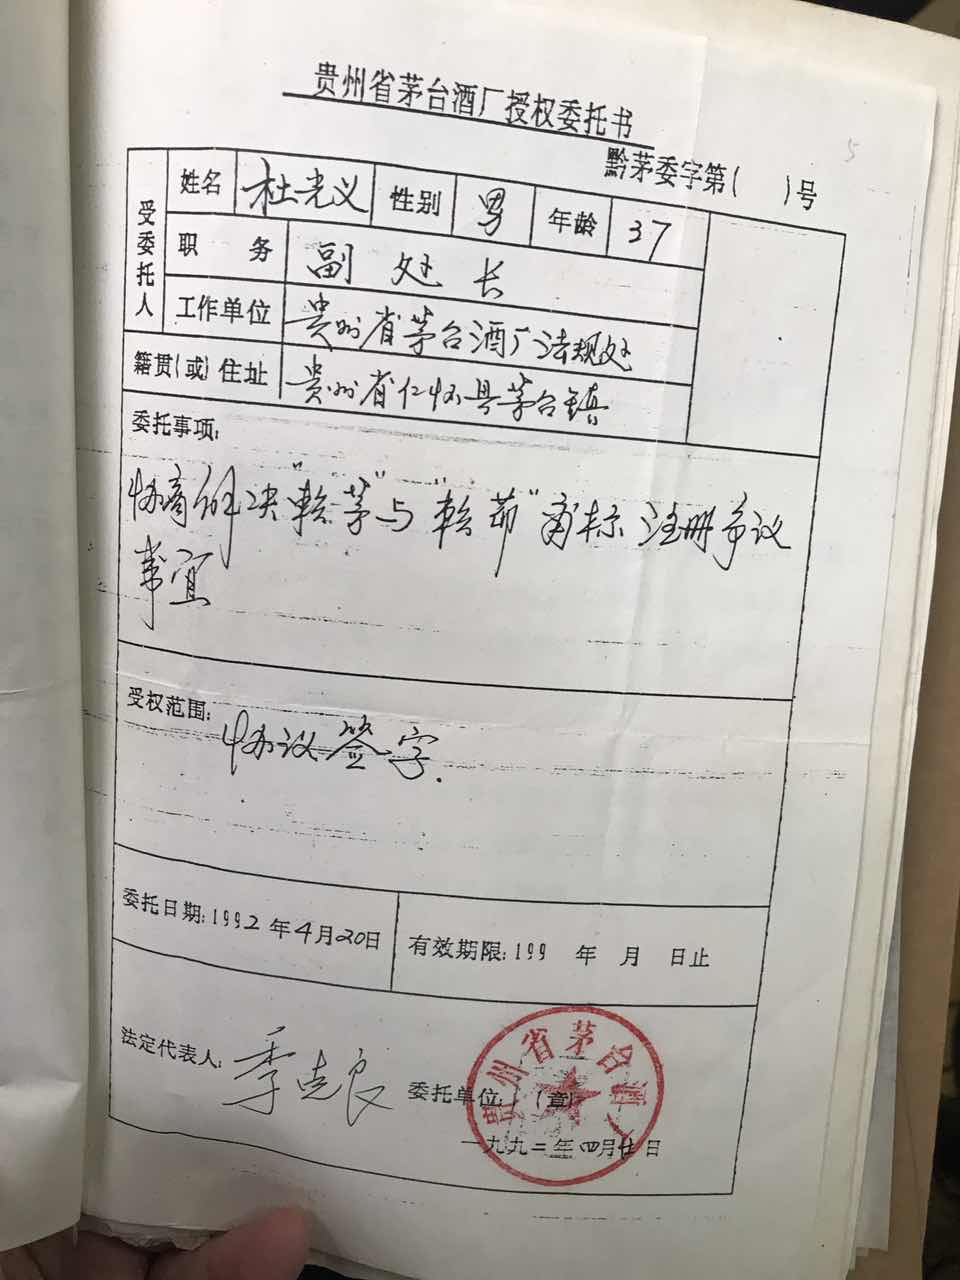 贵州省茅台酒厂授权委托书
5
黔茅委字第( )号
受委托人
姓名 杜光义 性别 男 年龄 37
职 务 副处长
工作单位 贵州省茅台酒厂法规处
籍贯(或)住址 贵州省仁怀县茅台镇
委托事项:
协商解决“赖茅”与“赖茆”商标注册争议
事宜
受权范围:
协议签字.
委托日期:1992年4月20日 有效期限:199 年 月 日止
法定代表人: 季克良 委托单位: (章)
贵州省茅台酒厂
一九九二年四月廿日